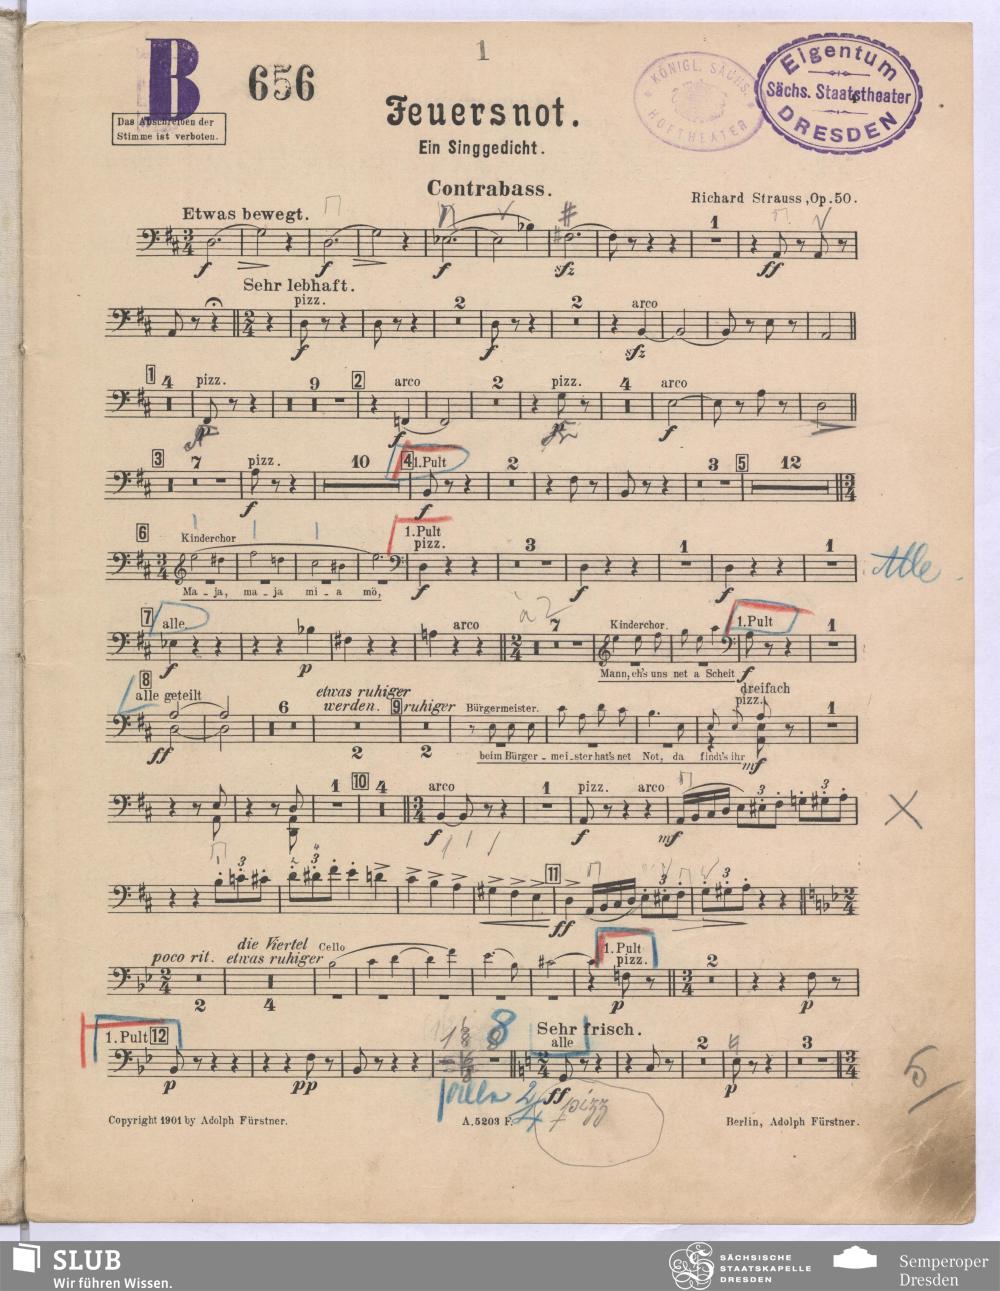 1
B
656
Das Abschreiben der
Stimme ist verboten.
KÖNIGL. SÄCHS.
HOFTHEATER
Eigentum
Sächs. Staatstheater
DRESDEN
Feuersnot.
Ein Singgedicht.
Contrabass.
Richard Strauss, Op. 50.
Etwas bewegt.
1
f f f sfz ff
Sehr lebhaft.
pizz. 2 2 arco
f f sfz
1 4 pizz. 9 2 arco 2 pizz. 4 arco
f f
3 7 pizz. 10 4 1. Pult 2 3 5 12
f f
6 Kinderchor 1. Pult
pizz. 3 1 1
Alle
Ma - ja, ma - ja mi - a mö,
f f f
à 2
7 alle arco 7 Kinderchor. 1. Pult 1
f p Mann, eh's uns net a Scheit f
8
alle geteilt 6 etwas ruhiger
werden. 9 ruhiger Bürgermeister. dreifach
pizz. 1
ff 2 2 beim Bürger - mei - ster hat's net Not, da findt's ihr mf
1 10 4 arco 1 pizz. arco 3 3
f f mf
3 3 11 3 3
ff
poco rit. die Viertel
etwas ruhiger Cello 1. Pult
pizz. 2
2 4 p p
1. Pult 12 8 Sehr frisch.
alle 2 3
p pp ff p
pizz
5
Copyright 1901 by Adolph Fürstner.
A. 5203 F.
Berlin, Adolph Fürstner.
SLUB
Wir führen Wissen.
SÄCHSISCHE
STAATSKAPELLE
DRESDEN
Semperoper
Dresden